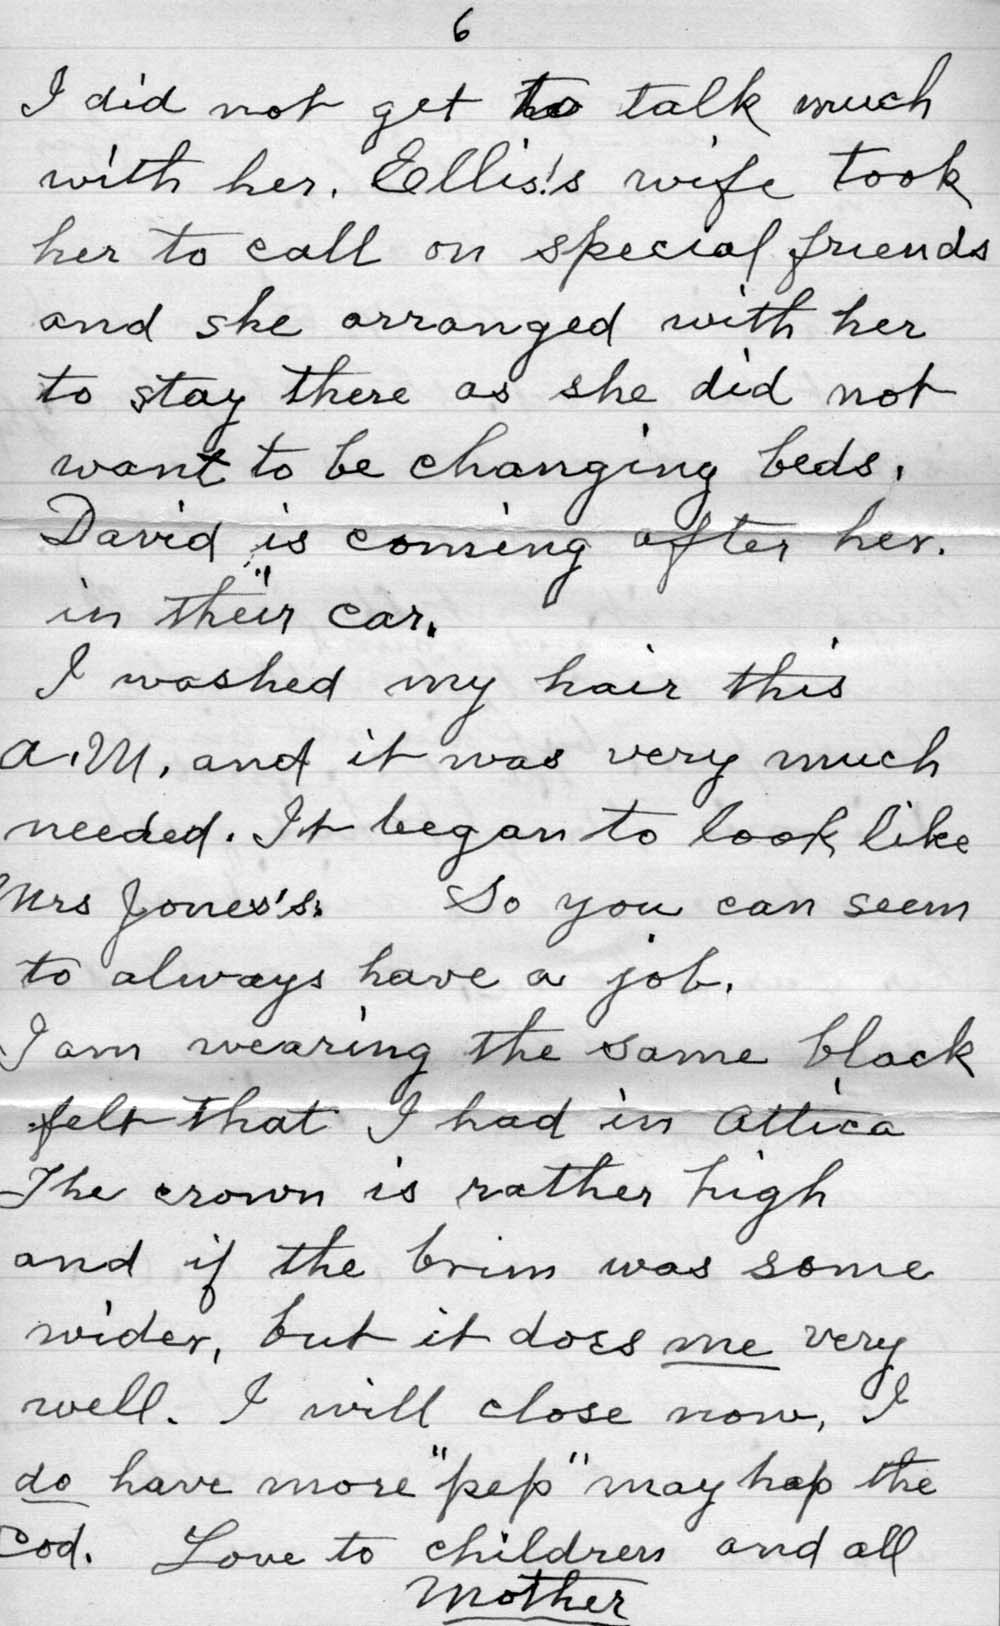 6
I did not get to talk much
with her. Ellis's wife took
her to call on special friends
and she arranged with her
to stay there as she did not
want to be changing beds.
David is coming after her.
in their car.
I washed my hair this
A.M. and it was very much
needed. It began to look like
Mrs Jones's. So you can seem
to always have a job.
I am wearing the same black
felt that I had in Attica
The crown is rather high
and if the brim was some
wider, but it does me very
well. I will close now, I
do have more "pep" may hap the
Cod. Love to children and all
Mother